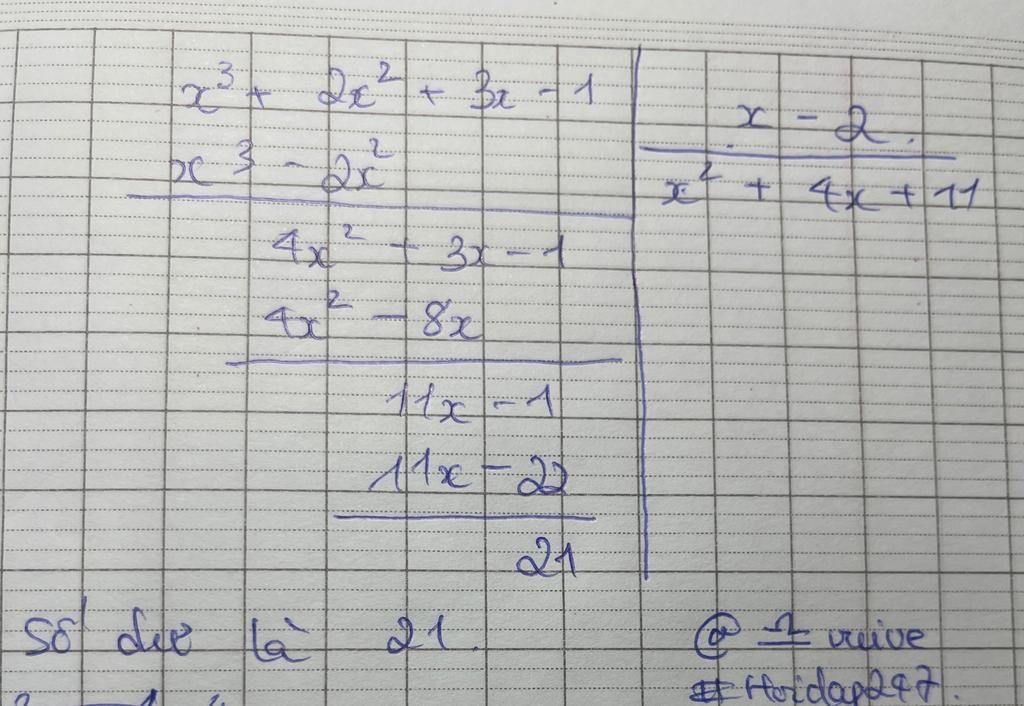 x³ + 2x² + 3x - 1
x - 2.
x³ - 2x²
x² + 4x + 11
4x² + 3x - 1
4x² - 8x
11x - 1
11x - 22
21
Số dư là 21.
@
#Hoidap247.